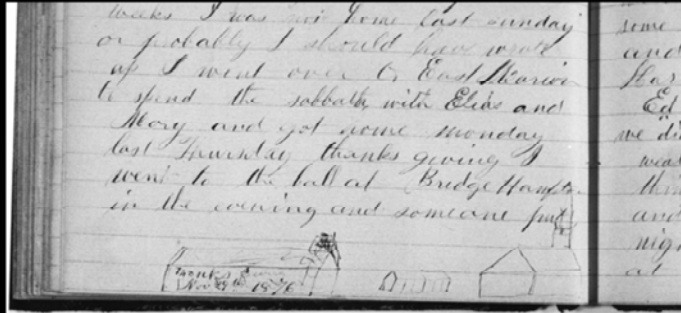 weeks I was not home last sunday
or probably I should have wrote
as I went over to East Marion
to spend the sabbath with Elias and
Mary and got home monday
last Thursday thanks giving I
went to the ball at Bridge Hampton
in the evening and someone put
Thanks Giving
Nov 1876
some
and
Ed
we di
and
nigh
at